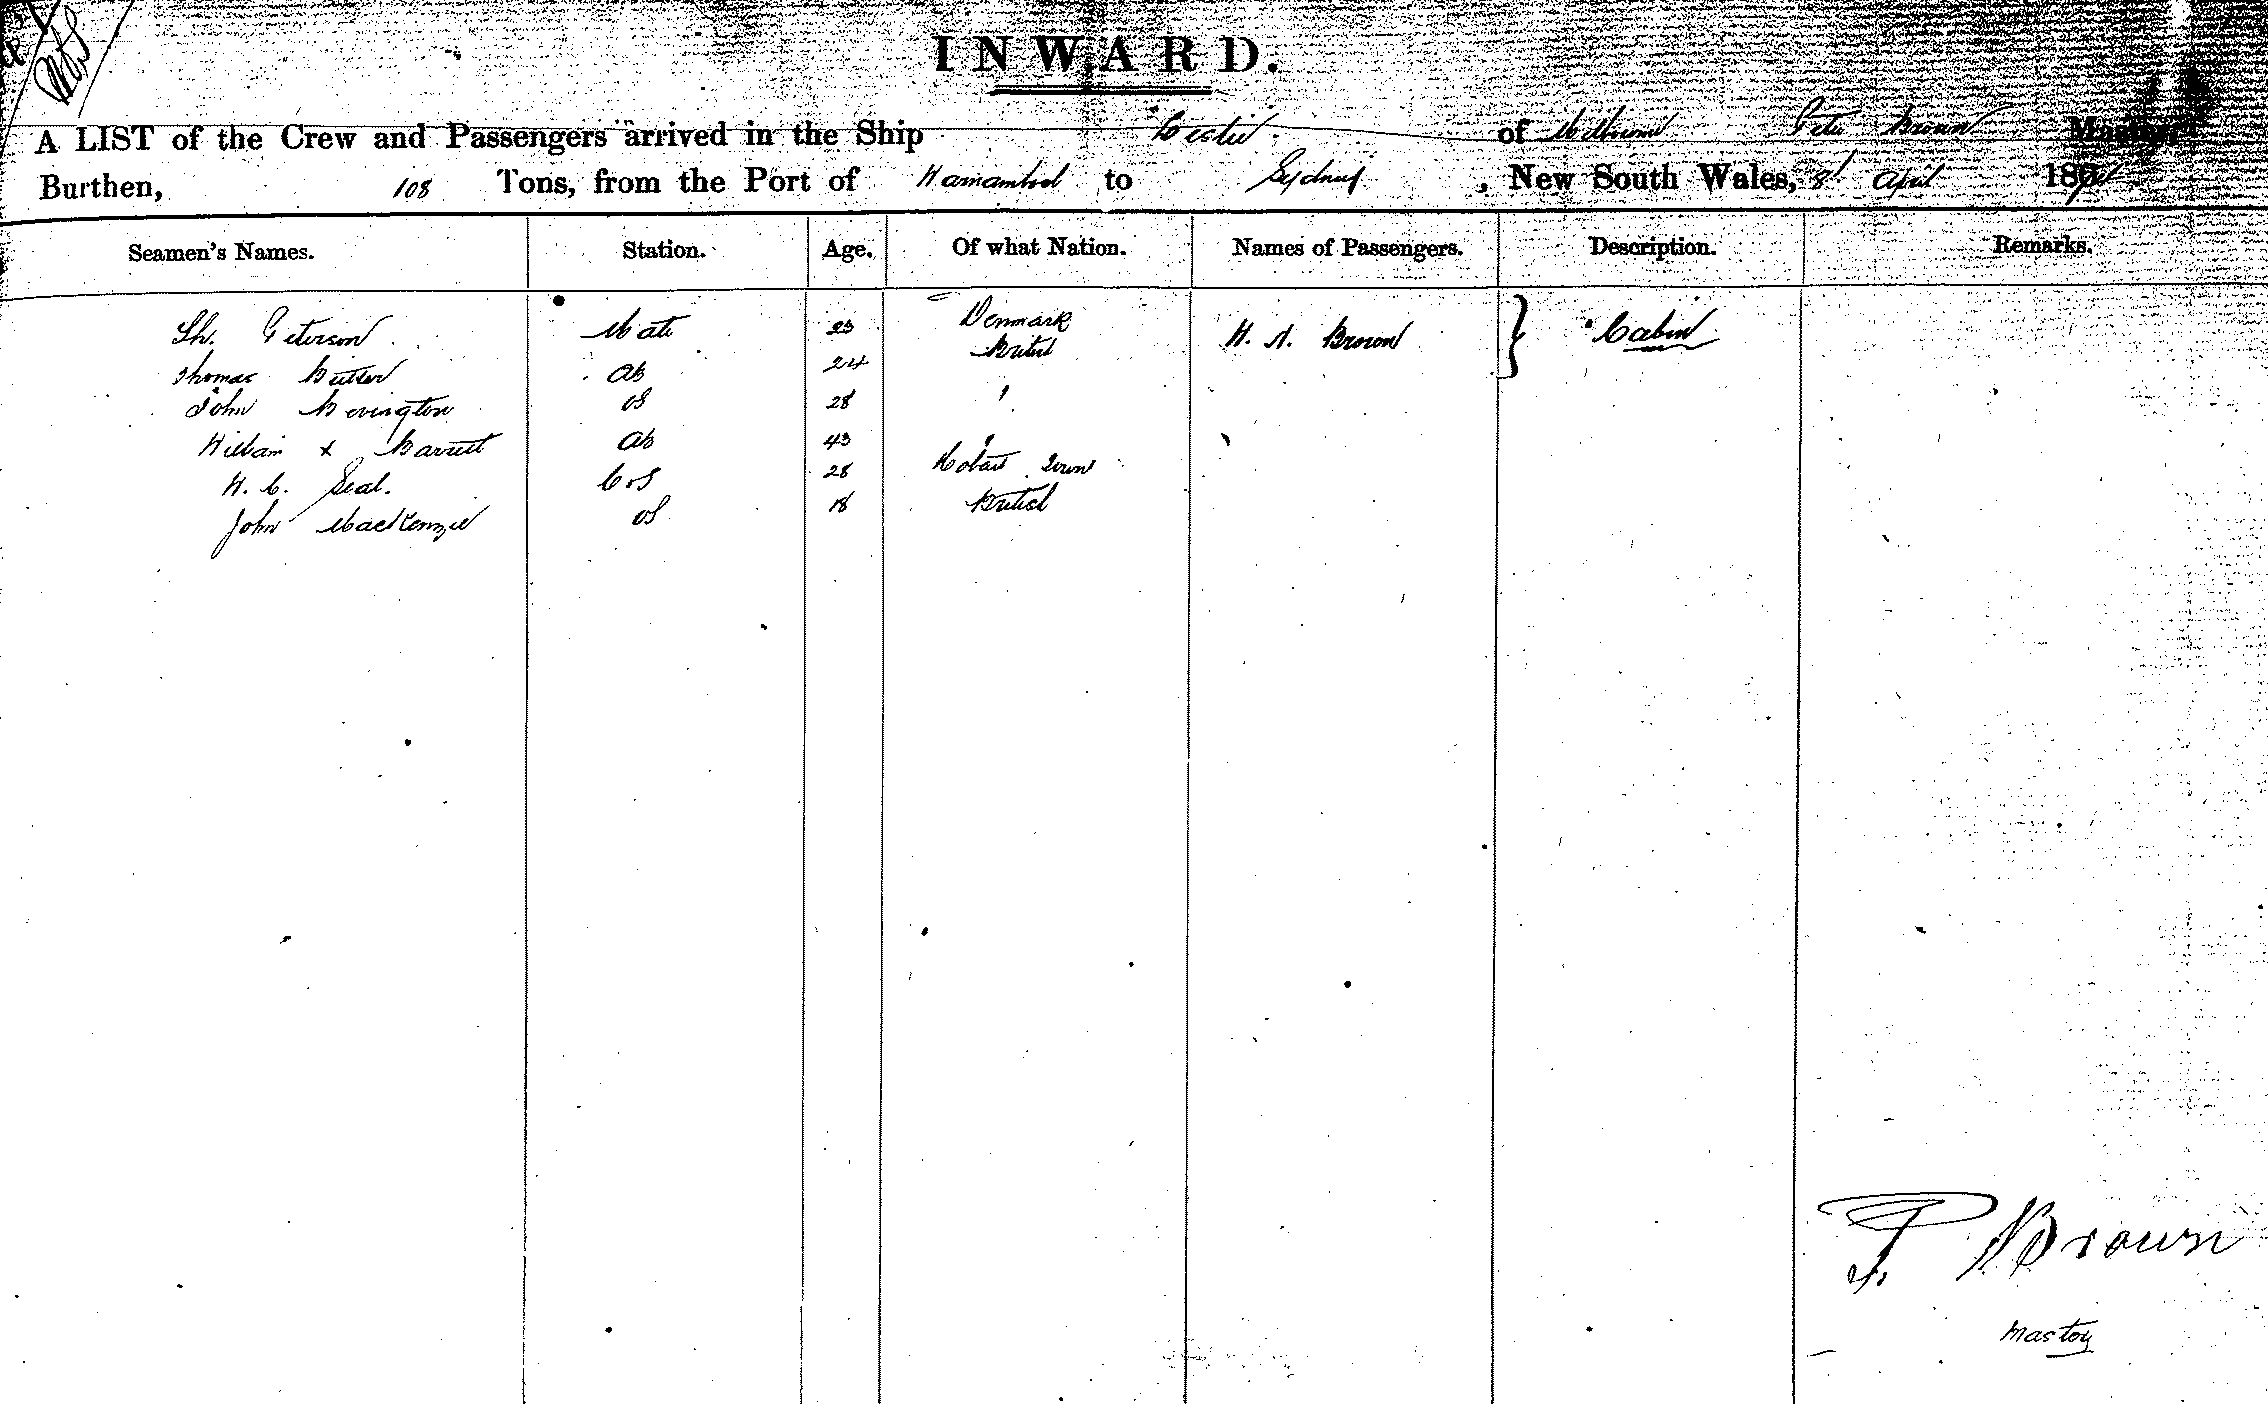 INWARD.
A LIST of the Crew and Passengers arrived in the Ship of Melbourne Peter Brown Master,
Burthen, 108 Tons, from the Port of to Sydney, New South Wales, 8th April 187
Seamen's Names. Station. Age. Of what Nation. Names of Passengers. Description. Remarks.
Peterson Mate 23 Denmark H. A. Brown } Cabin
Thomas Butler AB 24 British
John Bevington OS 28 "
William x Barrett AB 43 "
H. C. Seal. COS 28 Hobart Town
John MacKenzie OS 18 British
P Brown
Master